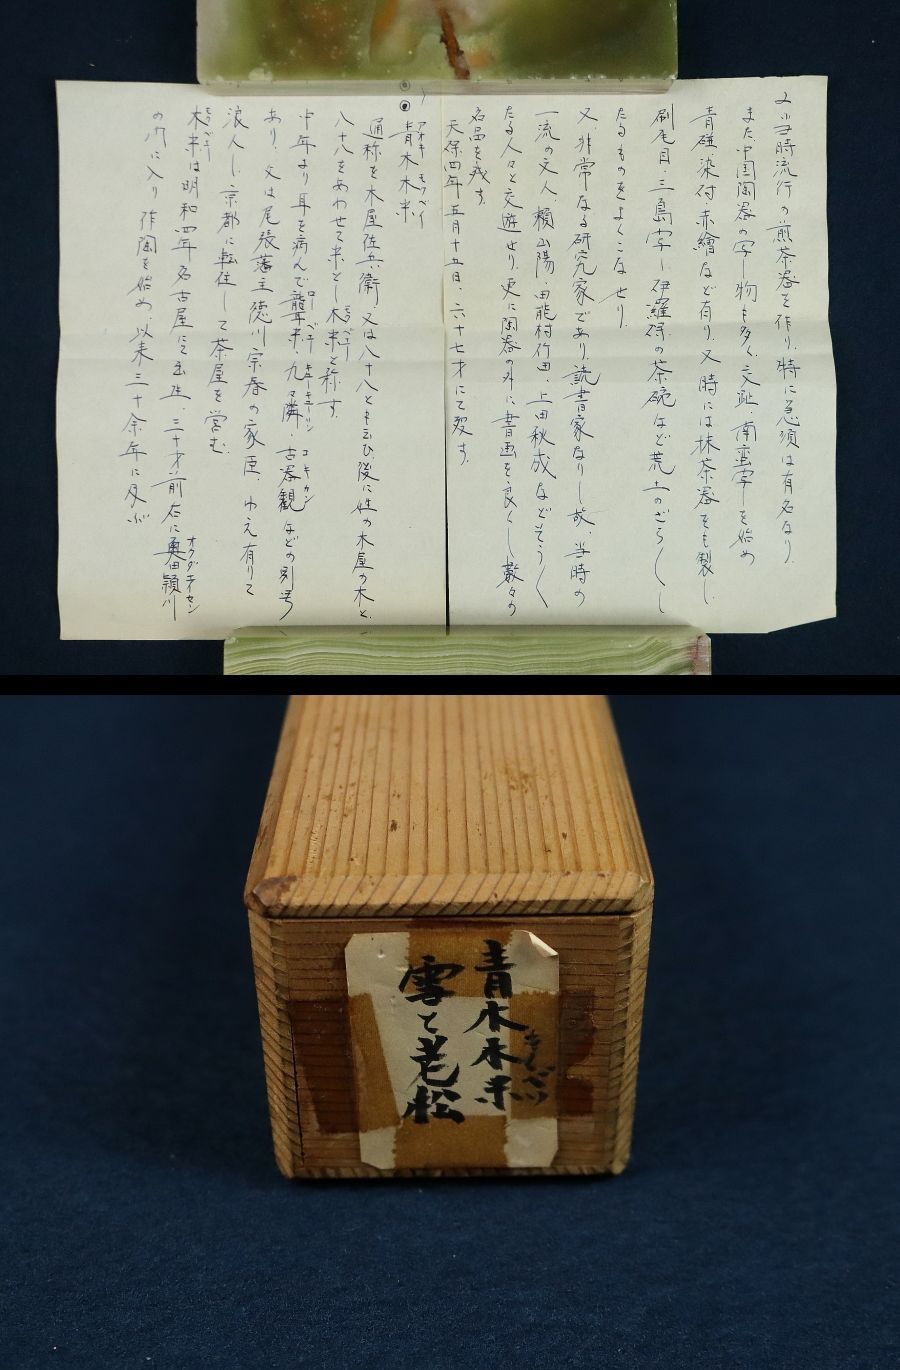 又当時流行の煎茶器を作り、特に急須は有名なり、
また中国陶器の写し物も多く、交趾、南蛮写しを始め
青磁染付、赤繪など有り、又時には抹茶器をも製し
刷毛目、三島写し、伊羅保の茶碗など荒土のざらしし
たるものをよくこなせり、
又非常なる研究家であり、読書家なりし故、当時の
一流の文人、頼山陽、田能村竹田、上田秋成などそうし
たる人々と交遊せり、更に陶器の外に書画を良くし数々の
名品を残す。
天保四年五月十五日、六十七才にて歿す。
アオキ モクベイ
青木木米
通称を木屋佐兵衛 又は八十八とも云ひ、後に姓の木屋の木と、
八十八をあわせて米とし木米と称す。
モクベイ
中年より耳を病んで聾米、九々隣、古器観などの別号
ローベイ キューキューリン コキカン
あり、父は尾張藩主徳川宗春の家臣、ゆえ有りて
浪人し、京都に転住して茶屋を営む。
木米は明和四年名古屋にて出生、三十才前后に奥田頴川
モクベイ
オクダエイセン
の門に入り作陶を始め、以来三十余年に及ぶ
青木木米
雪と老松